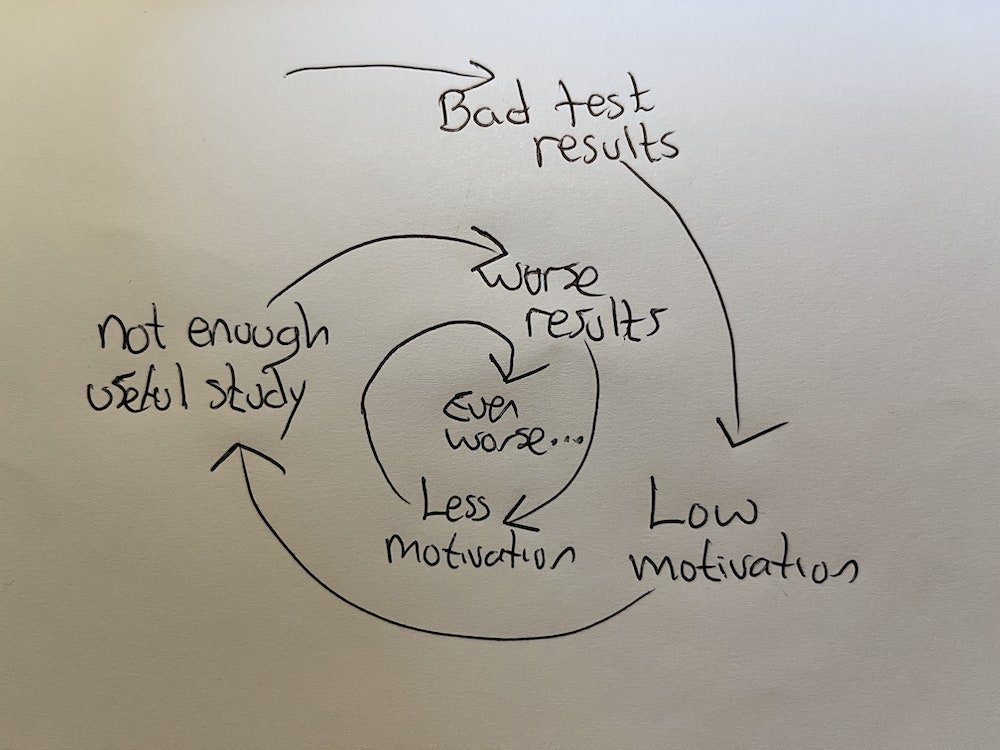 Bad test
results
worse
results
not enough
useful study
Even
worse...
Less
motivation
Low
motivation